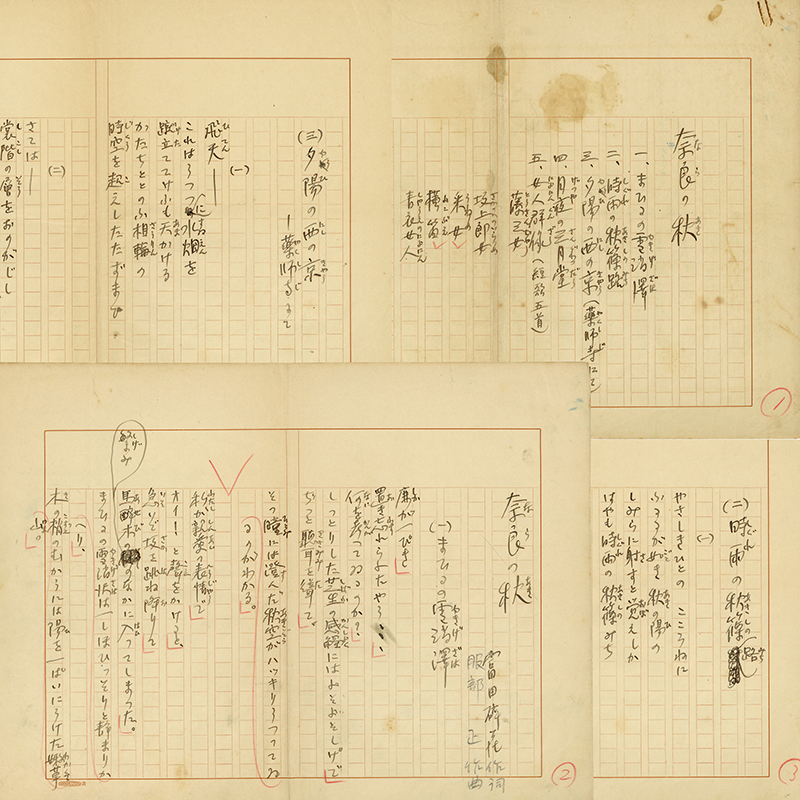 奈良の秋
一、まひるの雪消澤
二、時雨の秋篠路
三、夕陽の西の京(薬師寺にて)
四、月夜の三月堂
五、女人群像(組歌五首)
藤三女
坂上郎女
采女
横笛
青衣女人
①
(三)夕陽の西の京
―薬師寺にて
(一)
飛天―
これはうつつ
水煙を
蹴立てて
天かける
かたちととのふ相輪の
時空を超えしたたずまひ
(二)
さては―
裳階の層をおのがじし
奈良の秋
富田砕花 作詞
服部 正 作曲
(一)まひるの雪消澤
鹿が一ぴき
置き忘れられたやうに、
何を考へてゐるのか?
しっとりした芝生の感触にはよそよそしげで
ぢっと聴耳を聳て。
その瞳には澄んだ秋空がハッキリうつってゐ
るのがわかる。
私が親愛の表情で
オイ!と聲をかけると、
急いで坂を跳ね降りて
馬酔木の
繁み
のなかに入ってしまった。
まひるの雪消沢は一しほひっそりと静まりか
へり、
木の梢のむかうには陽を一ぱいにうけた嫩草
山。
②
(二)時雨の秋篠路
(一)
やさしきひとの こころねに
ふるるが如き 秋の陽の
しみらに射すと覚えしか
はやも時雨の秋篠みち
③